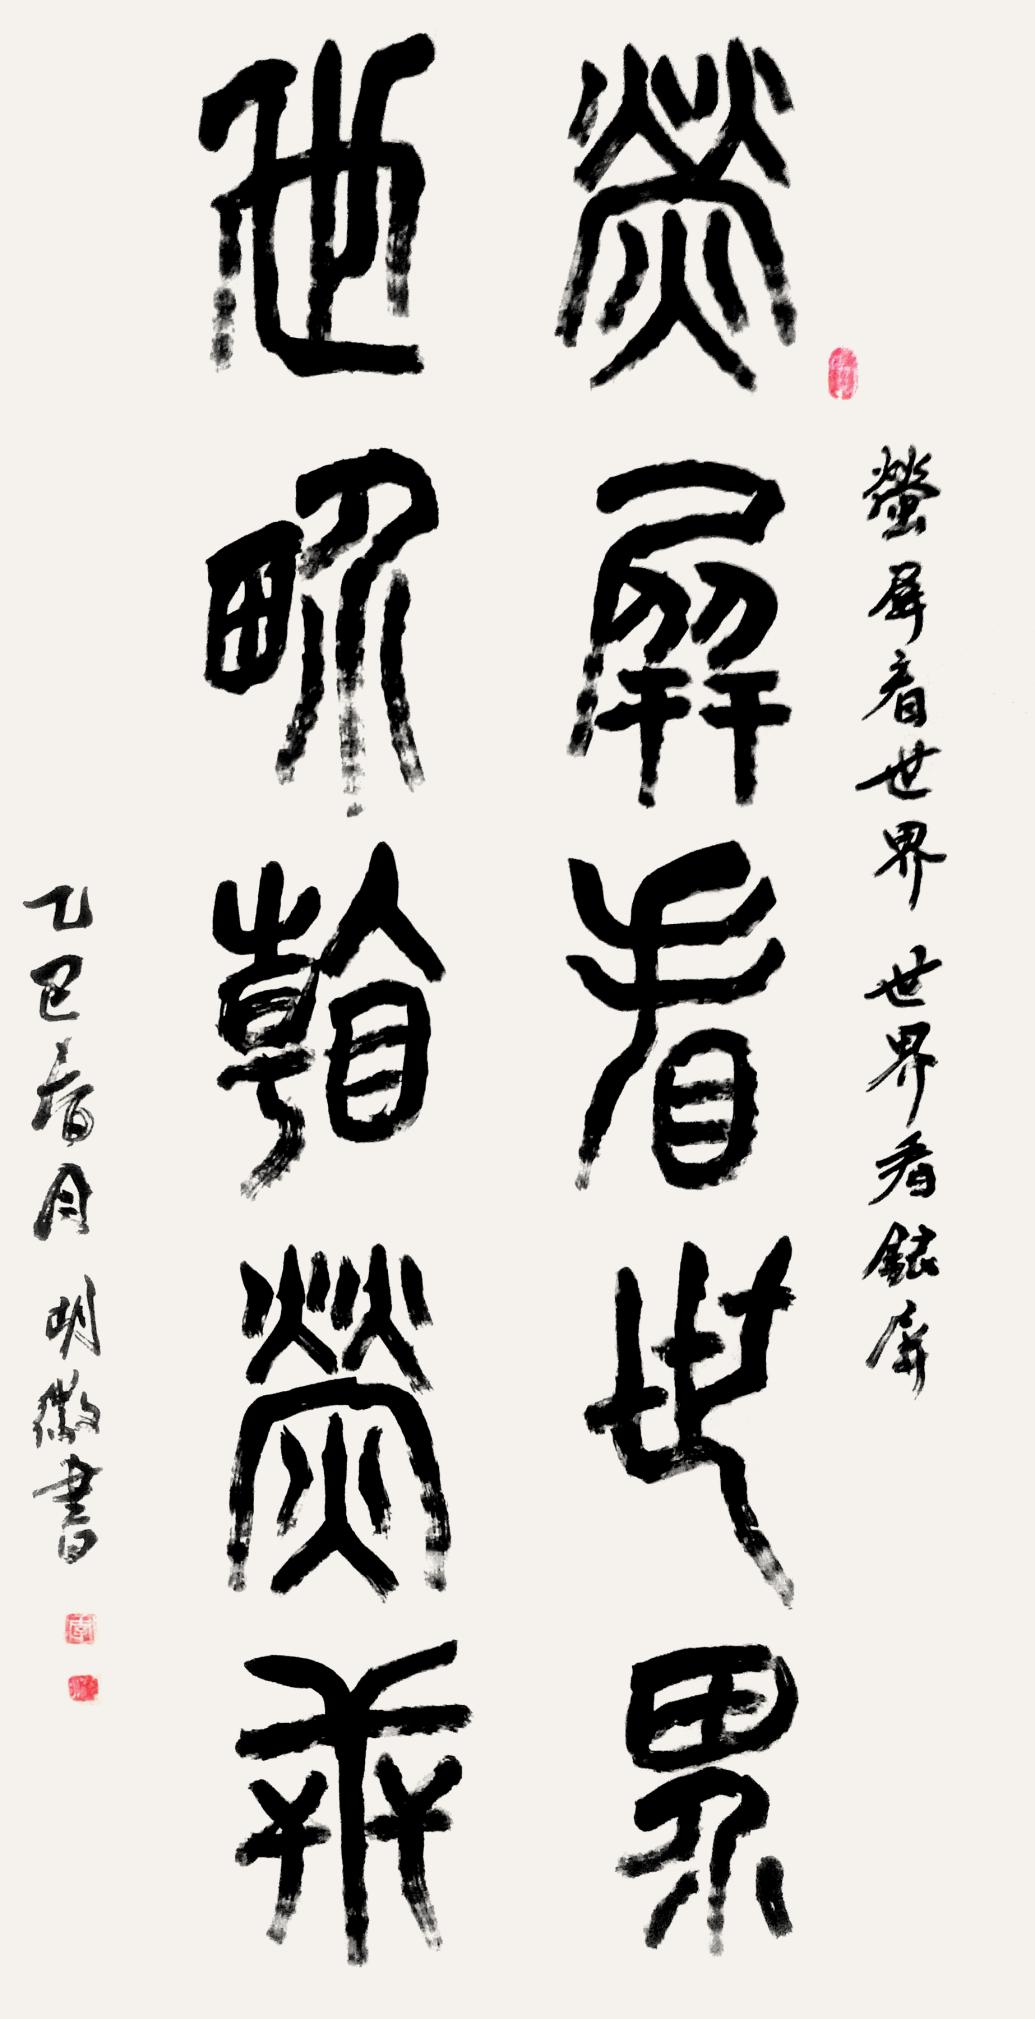 螢屏看世界
世界看熒屏
螢屏看世界 世界看銥屏
乙巳春月 明徽書